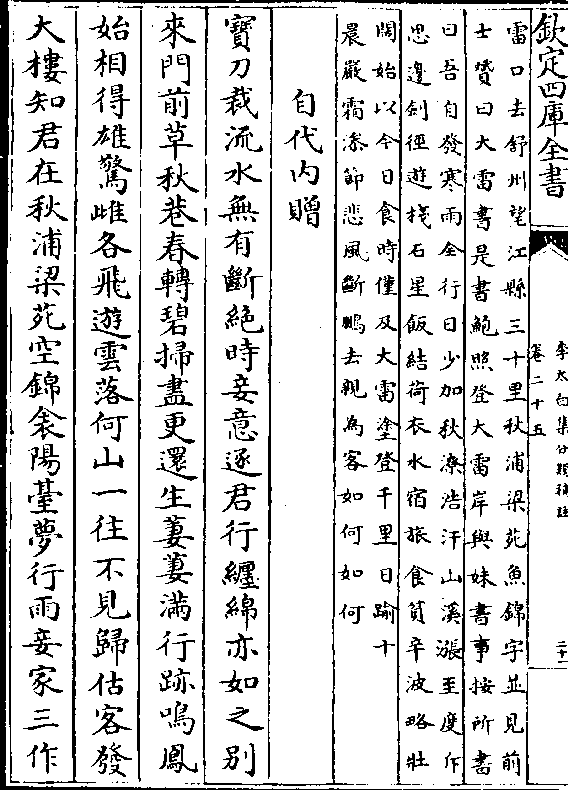 欽定四庫全書
李太白集分類補註
卷二十五
二十二
雷口去舒州望江縣三十里秋浦梁苑魚錦字並見前
士贇曰大雷書是書鮑照登大雷岸與妹書事按所書
曰吾自發寒雨全行日少加秋潦浩汗山溪漲至度作
思邊劍徑遊棧石星飯結荷衣水宿旅食貧辛波略壯
闊始以今日食時僅及大雷塗登千里日踰十
晨嚴霜滲節悲風斷鵬去親為客如何如何
自代内贈
寳刀裁流水無有斷絶時妾意逐君行纒綿亦如之别
來門前草秋巷春轉碧掃盡更還生萋萋滿行跡鳴鳳
始相得雄驚雌各飛遊雲落何山一往不見歸估客發
大樓知君在秋浦梁苑空錦衾陽臺夢行雨妾家三作